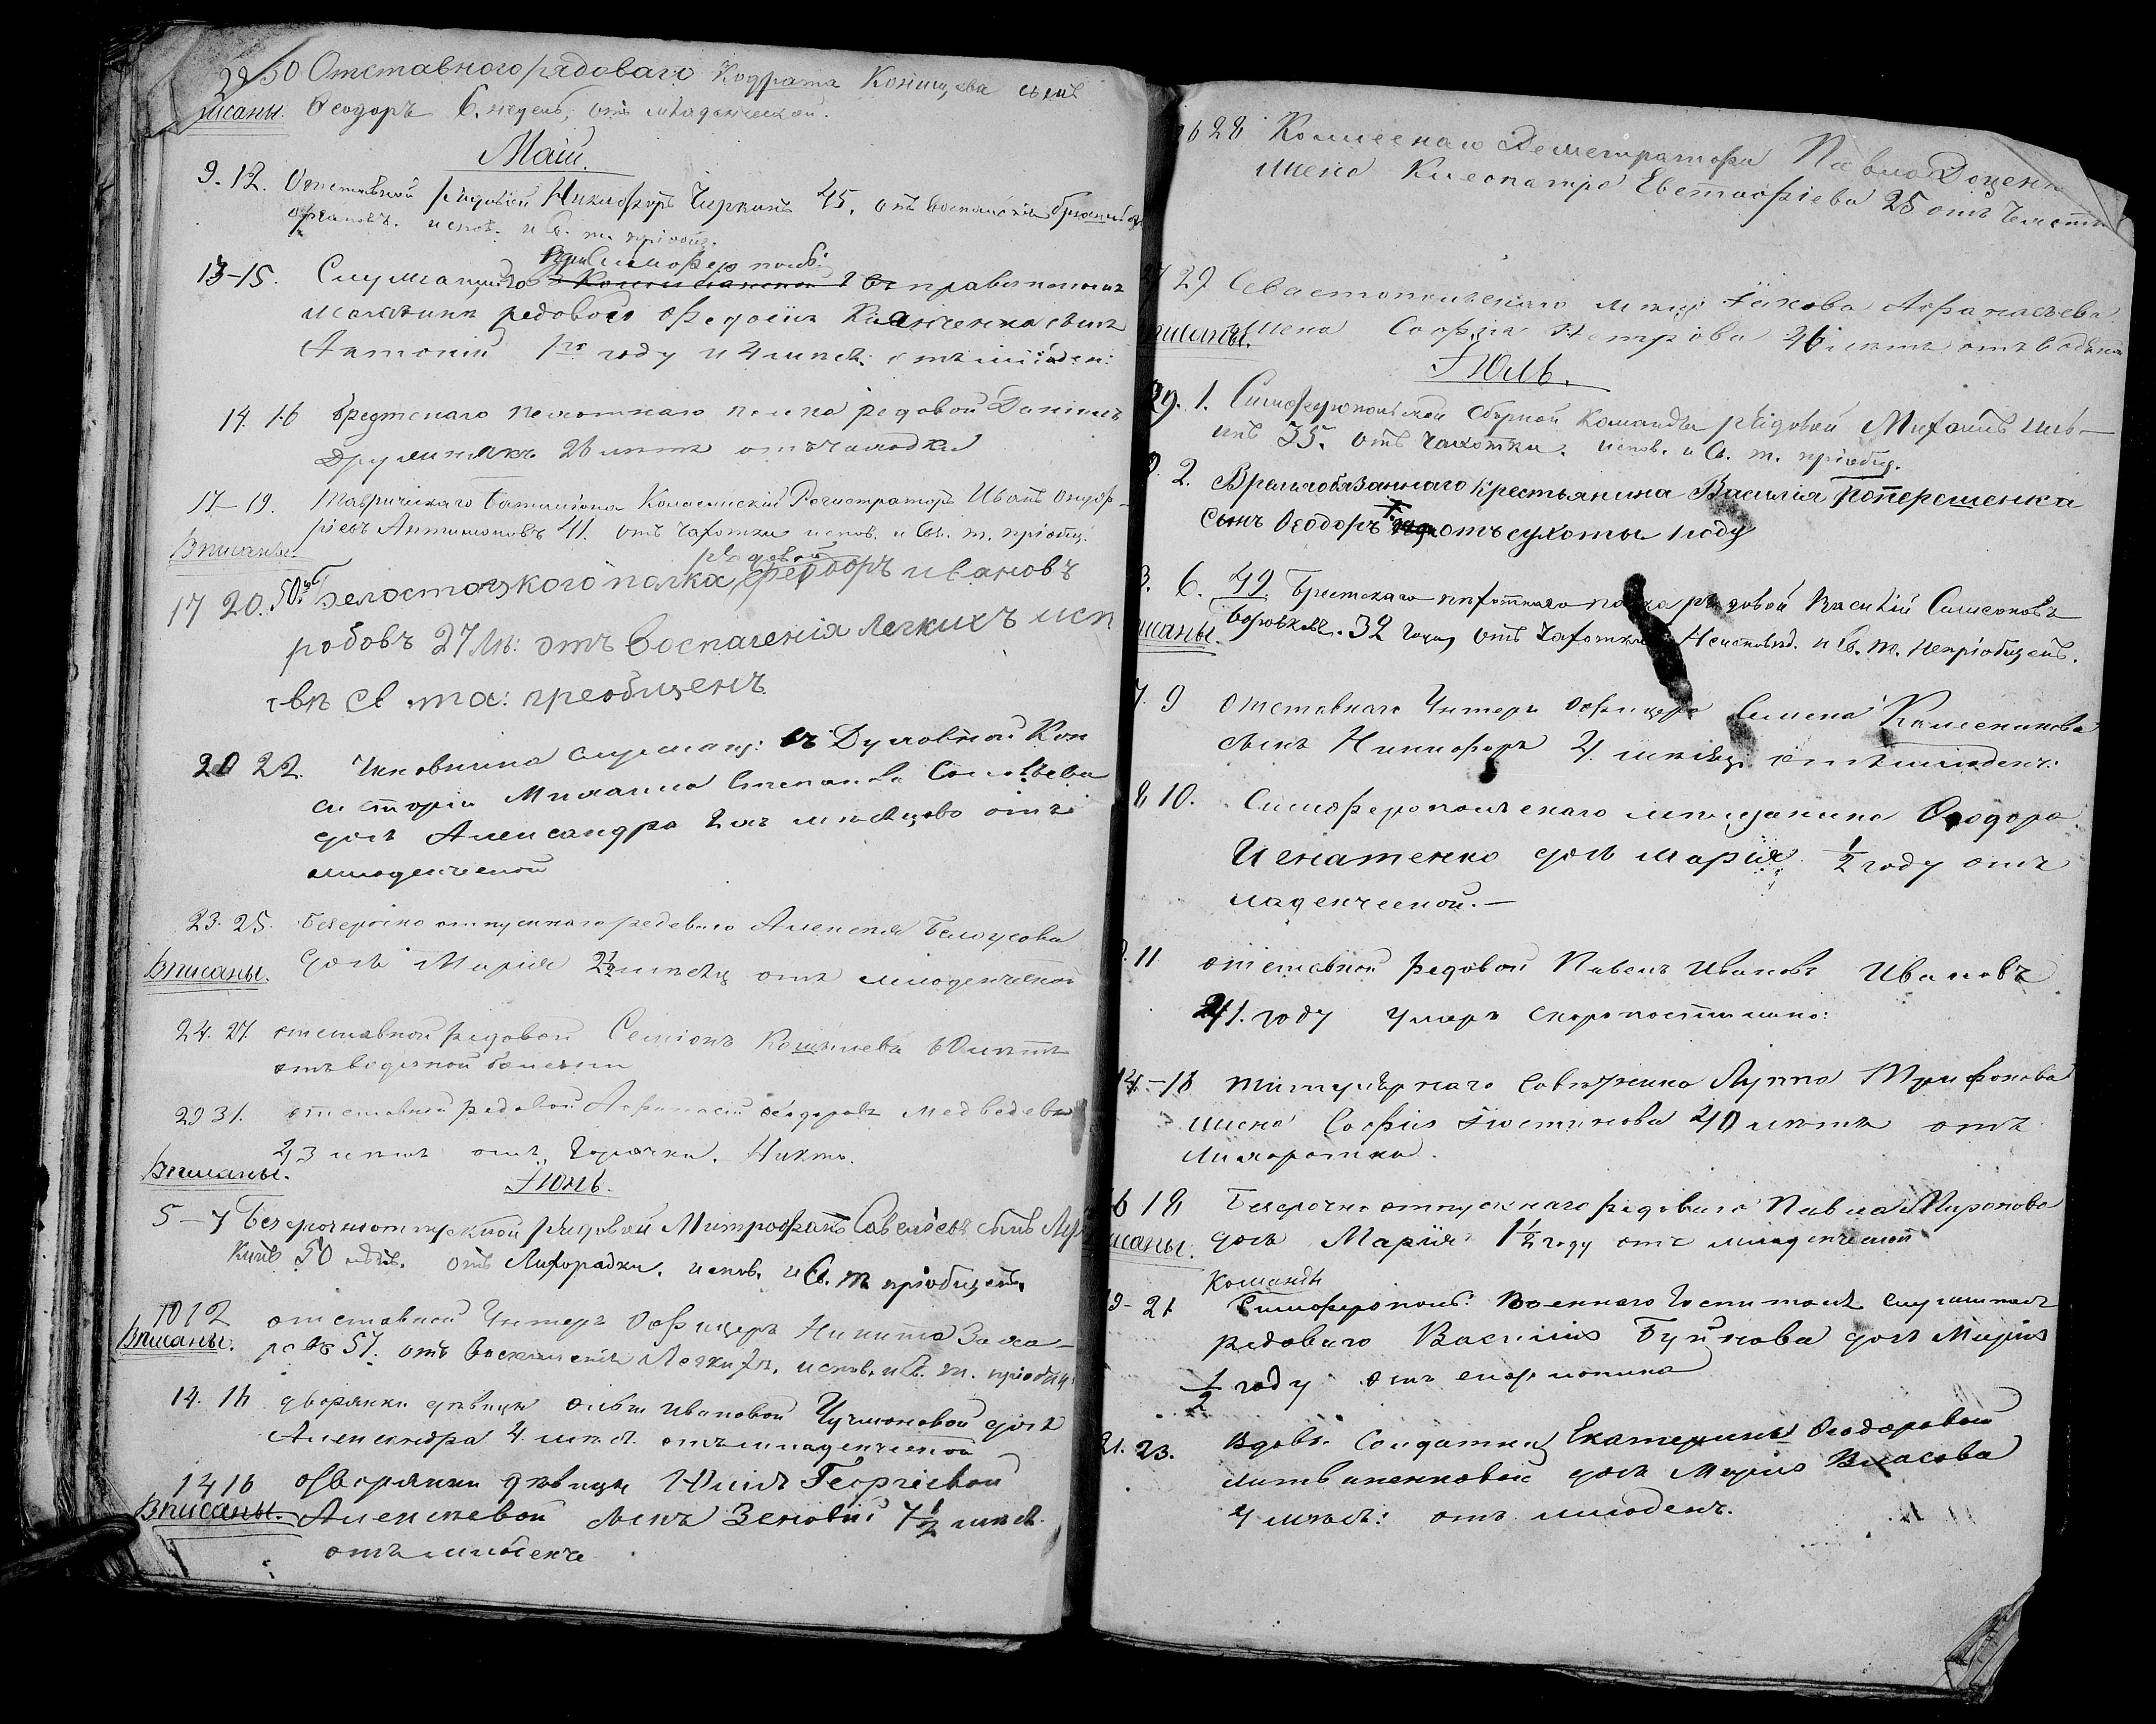 29 30 Отставного рядоваго Кодрата Конищева сынъ
Вписаны. Ѳеодоръ 6. недель, отъ младенческой.
Маій.
9. 12. Отставной рядовой Никифоръ Чиркинъ 45, отъ воспаленія брюшныхъ
органовъ. испов. и С. т. пріобщ.
при Симферополь:
13-15. Служащаго въ провіянтскомъ
магазинѣ редового
Антоній 1го году и 4 мѣсе: отъ младен:
14. 16 Брестскаго пехотнаго полка редовой Данiилъ
26 летъ отъ чахотки
17-19. Таврическаго Баталіона Колежскій Регистраторъ Иванъ Онуф-
ріевъ Антимоновъ 41. отъ чахотки испов. и Св. т. пріобщ.
Вписаны.
рядовой
17 20. 50го Белостоцкого полка, федоръ ивановъ
робовъ 27 Лѣ: отъ воспаленія легкихъ исп
-вѣ св. та: преобщенъ
20 22. Чиновника служащ: въ Духовной Кон
систоріи Михаила Степанова Соловьева
дочь Александра 2хъ месяцево отъ
младенческой
23. 25. Безсрочно отпускнаго редоваго Алексея Белоусова
Вписаны. дочь Марія 2½ месяц отъ младенческой
24. 27. отставной редовой Семіонъ 60 летъ
отъ водяной болезни
29 31. отставной редовой Афанасій Ѳеодоровъ Медведевъ
43 летъ отъ Горячки.
Вписаны.
Іюнь.
5-7 Безсрочноотпускной рядовой Митрофанъ Савельевъ сынъ
кинъ 50 лѣтъ. отъ Лихорадки. испов. и С. т. пріобщенъ.
10 12 отставной Унтеръ Офицеръ Никита Заха-
Вписаны. ровъ 57. отъ воспаленія Легкихъ, испов. и С. т. пріобщ.
14. 16 дворянки дѣвицы Ольги Ивановой дочь
Александра 4. месе. отъ младенческой
14 16 дворянки дѣвицы Юліи Георгіевой
Вписаны. Алексеевой сынъ Зеновій 7½ месе.
отъ младенче
26 28 Колежскаго Регистратора Павла Доценко
жена Клеопатра Евстафіева 25 отъ чахотки
27 29 Севастопольскаго мещ: Іакова Афанасьева
Вписаны. жена Софія Петрова 26 летъ отъ водяной
Іюль.
29. 1. Симферопольской сборной команды рядовой Михаилъ
35. отъ чахотки. испов. и С. т. пріобщ.
2. Временобязаннаго крестьянина Василія Поперешенка
сынъ Ѳеодоръ отъ сухоты 1 году
3. 6. 49 Брестскаго пѣхотнаго полка рядовой Василій Самсоновъ
Вписаны. Боровковъ. 32 года, отъ чахотки Неисповед. и С. т. непріобщенъ.
7. 9 отставнаго Унтеръ Офицера Семена Каменикова
сынъ Никифоръ 4. месяц. отъ младенч:
8 10. Симферопольскаго мещанина Ѳеодора
Игнатенко дочь Марія ½ году отъ
младенческой.—
9. 11 отставной редовой Павелъ Ивановъ Ивановъ
41. году умеръ скоропостижно:
14-16 титулярнаго Советника Луппа Трифонова
жена Софія 40 летъ отъ
лихоратки.
16 18 Безсрочно отпускнаго редоваго Павла Миронова
Вписаны. дочь Марія 1½ году отъ младенческой
Команды
19-21 Симферополь: Военнаго Госпиталя служителя
редоваго Василія Буйнова дочь Марія
½ году отъ скарлатина
21. 23. вдовы Солдатки Екатерины Ѳеодоровой
Литвиненковой дочь Марія Власова
4 месе: отъ младенч.